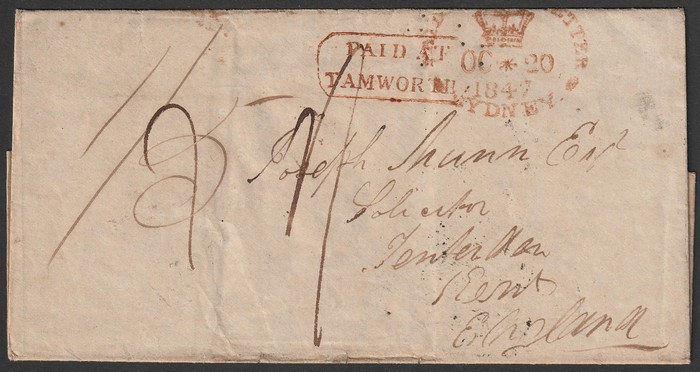 PAID AT
TAMWORTH
LETTER
OC * 20
1847
SYDNEY
Joseph Munn Esqr
Solicitor
Tenterden
Kent
England